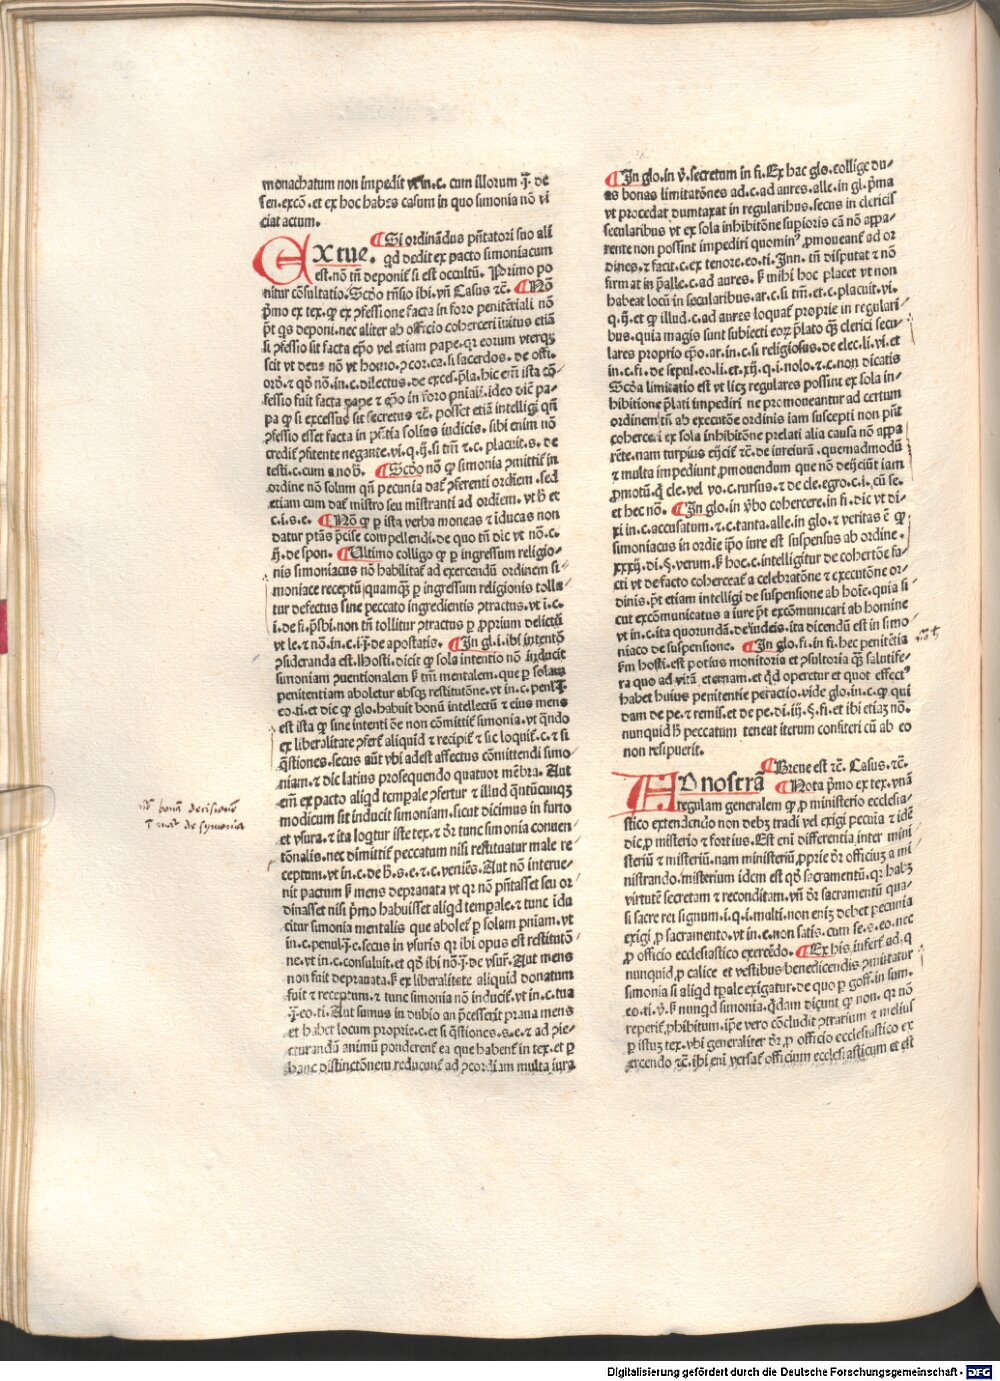 monachatum non impedit vt in.c. cum illorum.ī. de
sen.excō. et ex hoc habes casum in quo simonia nō vi
ciat actum.
¶Si ordinādus pn̄tatori suo ali
EX tue. qd dedit ex pacto simoniacum
est.nō tn̄ deponit̄ si est occultū. Primo po
nitur cōsultatio.Scd̄o rn̄sio ibi.vn̄ Casus ⁊c. ¶Nō
pͥmo ex tex. ꝙ ex ꝯfessione facta in foro penitētiali nō
pn̄t qs deponi.nec aliter ab officio coherceri īuitus etiā
si ꝯfessio sit facta ep̄o vel etiam pape.qr eorum vterqꝫ
scit vt deus nō vt homo.
credit̄ ꝯfitente negante.vi.q.ij.si tn̄ ⁊ c. placuit.s. de
testi.c.cum a nob̄. ¶Scd̄o nō ꝙ simonia ꝯmittit̄ in
ordine nō solum qn̄ pecunia dat̄ ꝯferenti ordīem.sed
etiam cum dat̄ mistro seu mīstranti ad ordīem.vt h̄ et
c.i.s.e. ¶Nō ꝙ p ista verba moneas ⁊ iducas non
datur ptās pͥcise compellendi.de quo tn̄ dic vt nō.c.
ij.de spon. ¶Ultimo colligo ꝙ p ingressum religio-
nis simoniacus nō habilitat̄ ad exercendū ordinem si-
moniace receptū quamqꝫ p ingressum religionis tolla
tur defectus sine peccato ingredientis ꝯtractus.vt i.c.
i.de fi.pͥsbi.non tn̄ tollitur ꝯtractus p ꝓprium delictū
vt le.⁊ nō.in.c.ij.ī.de apostatis. ¶In gl.i.ibi intentō
ꝯsideranda est.Hosti.dicit ꝙ sola intentio nō inducit
simoniam ꝯuentionalem s̄ tm̄ mentalem.que p solam
penitentiam aboletur absqꝫ restitutōne.vt in.c.penl.ī.
eo.ti.et dic ꝙ glo.habuit bonū intellectū ⁊ eius mens
est ista ꝙ sine intenti oē non cōmittit̄ simonia.vt qn̄do
ex liberalitate ꝯfert̄ aliquid ⁊ recipit̄ ⁊ sic loquit̄.c.⁊ si
q̄stiones.secus aūt vbi adest affectus cōmittendi simo
niam.⁊ dic latius prosequendo quatuor mēbra. Aut
em̄ ex pacto aliqd tempale ꝯfertur ⁊ illud qn̄tūcunqꝫ
modicum sit inducit simoniam.sicut dicimus in furto
et vsura.⁊ ita loqtur iste tex.⁊ dr̄ tunc simonia conuen
tōnalis.nec dimittit̄ peccatum nisi restituatur male re-
ceptum.vt in.c.de h̄.s.e.⁊.c.veniēs. Aut nō interue-
nit pactum s̄ mens deprauata vt qr nō pn̄tasset seu or-
dinasset nisi pͥmo habuisset aliqd tempale.⁊ tunc īdu
citur simonia mentalis que abolet̄ p solam pniam.vt
in.c.penul.ī.c.secus in vsuris qr ibi opus est restitutō-
ne.vt in.c.consuluit.et qd̄ ibi nō.ī.de vsur̄. Aut mens
non fuit deprauata.s̄ ex liberalitate aliquid donatum
fuit ⁊ receptum.⁊ tunc simonia nō inducit̄.vt in.c.tua
.ī.eo.ti. Aut sumus in dubio an pͥcesserit praua mens
et habet locum proprie.c.et si q̄stiones.s.e.⁊ ad ꝯie-
cturandū animū ponderent̄ ea que habent̄ in tex.et p
hanc distinctōnem reducunt̄ ad ꝯcordiam multa iura
¶In glo.in v̄.secretum in fi.Ex hac glo.collige du-
as bonas limitatōnes ad.c.ad aures.alle.in gl.pͥma
vt procedat dumtaxat in regularibus.secus in clericis
secularibus vt ex sola inhibitōne supioris cā nō appa-
rente non possint impediri quomin⁹ ꝓmoueant̄ ad or
dines.⁊ facit.c.ex tenore.eo.ti. Inn. tn̄ disputat ⁊ nō
firmat in pͥalle.c.ad aures. s̄ mihi hoc placet vt non
habeat locū in secularibus.ar.c.si tm̄.et.c.placuit.vi.
q.ij.et ꝙ illud.c.ad aures loquat̄ proprie in regulari-
bus.quia magis sunt subiecti eorꝫ plato qꝫ clerici secu-
lares proprio ep̄o.ar.in.c.si religiosus.de elec.li.vi.et
in.c.fi.de sepul.eo.li.et.xij.q.i.nolo.⁊.c.non dicatis
Scd̄a limitatio est vt licꝫ regulares possint ex sola in-
hibitione p̄lati impediri ne promoueantur ad certum
ordinem tn̄ ab executōe ordinis iam suscepti non pn̄t
coherceri ex sola inhibitōne prelati alia causa nō appa
rēte.nam turpius eijcit̄ ⁊c̄.de iureiurā.quemadmodū
⁊ multa impediunt ꝓmouendum que nō deijciūt iam
ꝓmotū.
et hec nō. ¶In glo.in v̄bo cohercere.in fi.dic vt di-
xi in.c.accusatum.⁊.c.tanta.alle.in glo.⁊ veritas ē ꝙ
simoniacus in ordīe ip̄o iure est suspensus ab ordine.
xxxij.di.§.verum.s̄ hoc.c.intelligitur de cohertōe fa-
cti vt de facto coherceat̄ a celebratōne ⁊ executōne or-
dinis.pͥt etiam intelligi de suspensione ab hoīe.quia si-
cut excōmunicatus a iure pͥt excōmunicari ab homine
vt in.c.ita quorundā.de iudeis.ita dicendū est in simo
niaco de suspensione. ¶In glo.fi.in fi.hec penitētia
s̄m hosti.est potius monitoria et ꝯsultoria qꝫ salutife-
ra quo ad vitā eternam.et qd̄ operetur et quot effect⁹
habet huius penitentie peractio.vide glo.in.c.ꝙ qui
dam de pe.⁊ remiss.et de pe.di.iij.§.fi.et ibi etiaꝫ nō.
nunquid h̄ peccatum teneat iterum confiteri cū ab eo
non resipuerit.
¶Breue est ⁊c. Casus.⁊c.
AD nostrā ¶Nota pͥmo ex tex.vnā
regulam generalem ꝙ ꝓ ministerio ecclesia-
stico extendendo non debꝫ tradi vel exigi pecuia ⁊ idē
dic ꝓ misterio ⁊ fortius. Est eni differentia inter mini
steriū ⁊ misteriū.nam ministeriū ꝓprie dr̄ officiuꝫ a mi
nistrando.misterium idem est qd̄ sacramentū.qr habꝫ
virtutē secretam ⁊ reconditam.vn̄ dr̄ sacramentū qua-
si sacre rei signum.i.q.i.multi.non eniꝫ debet pecunia
exigi ꝓ sacramento.vt in.c.non satis.cum se.s.eo.nec
ꝓ officio ecclesiastico exercēdo. ¶Ex his infert̄ ad.q.
nunquid ꝓ calice et vestibus benedicendis ꝯmittatur
simonia si aliqd tp̄ale exigatur.de quo p goff.in sum.
eo.ti.v̄.s̄ nunqd simonia.qdam dicunt ꝙ non.qr nō
reperit̄ ꝓhibitum.ip̄e vero cōcludit ꝯtrarium ⁊ melius
p istuꝫ tex.vbi generaliter dr̄ ꝓ officio ecclesiastico ex
ercendo ⁊c̄.ibi eni versat̄ officium ecclesiasticum et est
Digitalisierung gefördert durch die Deutsche Forschungsgemeinschaft - DFG